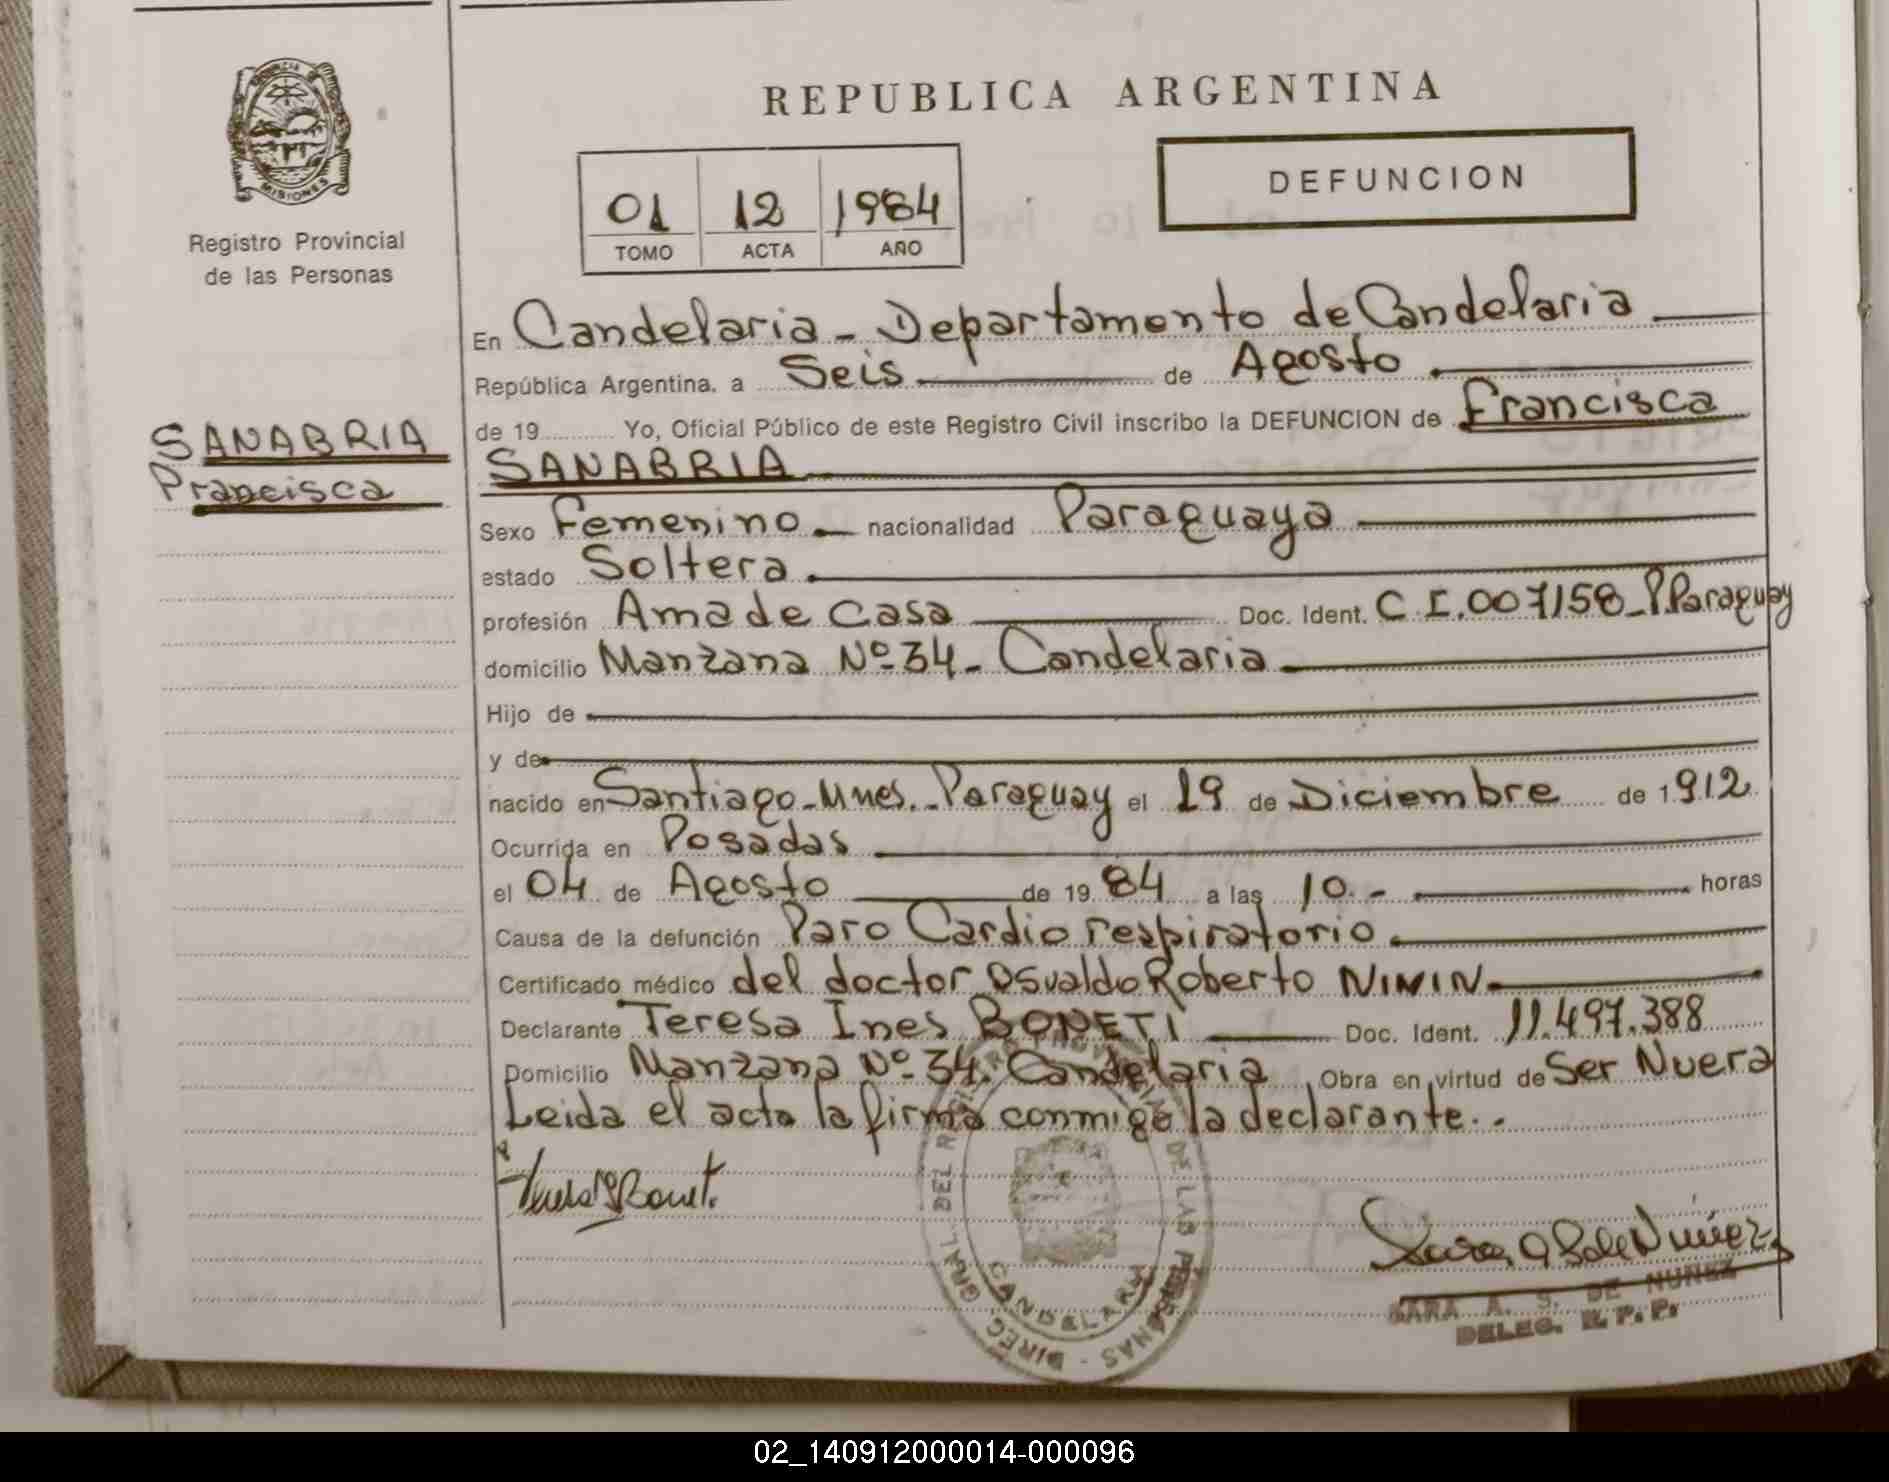 REPUBLICA ARGENTINA
PROVINCIA DE
MISIONES
Registro Provincial
de las Personas
01 12 1984
TOMO ACTA AÑO
DEFUNCION
En Candelaria - Departamento de Candelaria
República Argentina, a Seis de Agosto
de 19 Yo, Oficial Público de este Registro Civil inscribo la DEFUNCION de Francisca
SANABRIA
SANABRIA
Francisca
Sexo Femenino nacionalidad Paraguaya
estado Soltera
profesión Ama de casa Doc. Ident. C.I. 007158 - P. Paraguay
domicilio Manzana Nº 34 - Candelaria
Hijo de
y de
nacido en Santiago - Mnes. - Paraguay el 19 de Diciembre de 1912
Ocurrida en Posadas
el 04 de Agosto de 1984 a las 10.- horas
Causa de la defunción Paro Cardio respiratorio
Certificado médico del doctor Osvaldo Roberto NININ
Declarante Teresa Ines BONETI Doc. Ident. 11.497.388
Domicilio Manzana Nº 34. Candelaria Obra en virtud de Ser Nuera
Leida el acta la firma conmigo la declarante..
DIREC. GRAL. DEL REGISTRO PROVINCIAL DE LAS PERSONAS -
CANDELARIA
SARA A. S. DE NUÑEZ
DELEG. R. P. P.
02_140912000014-000096